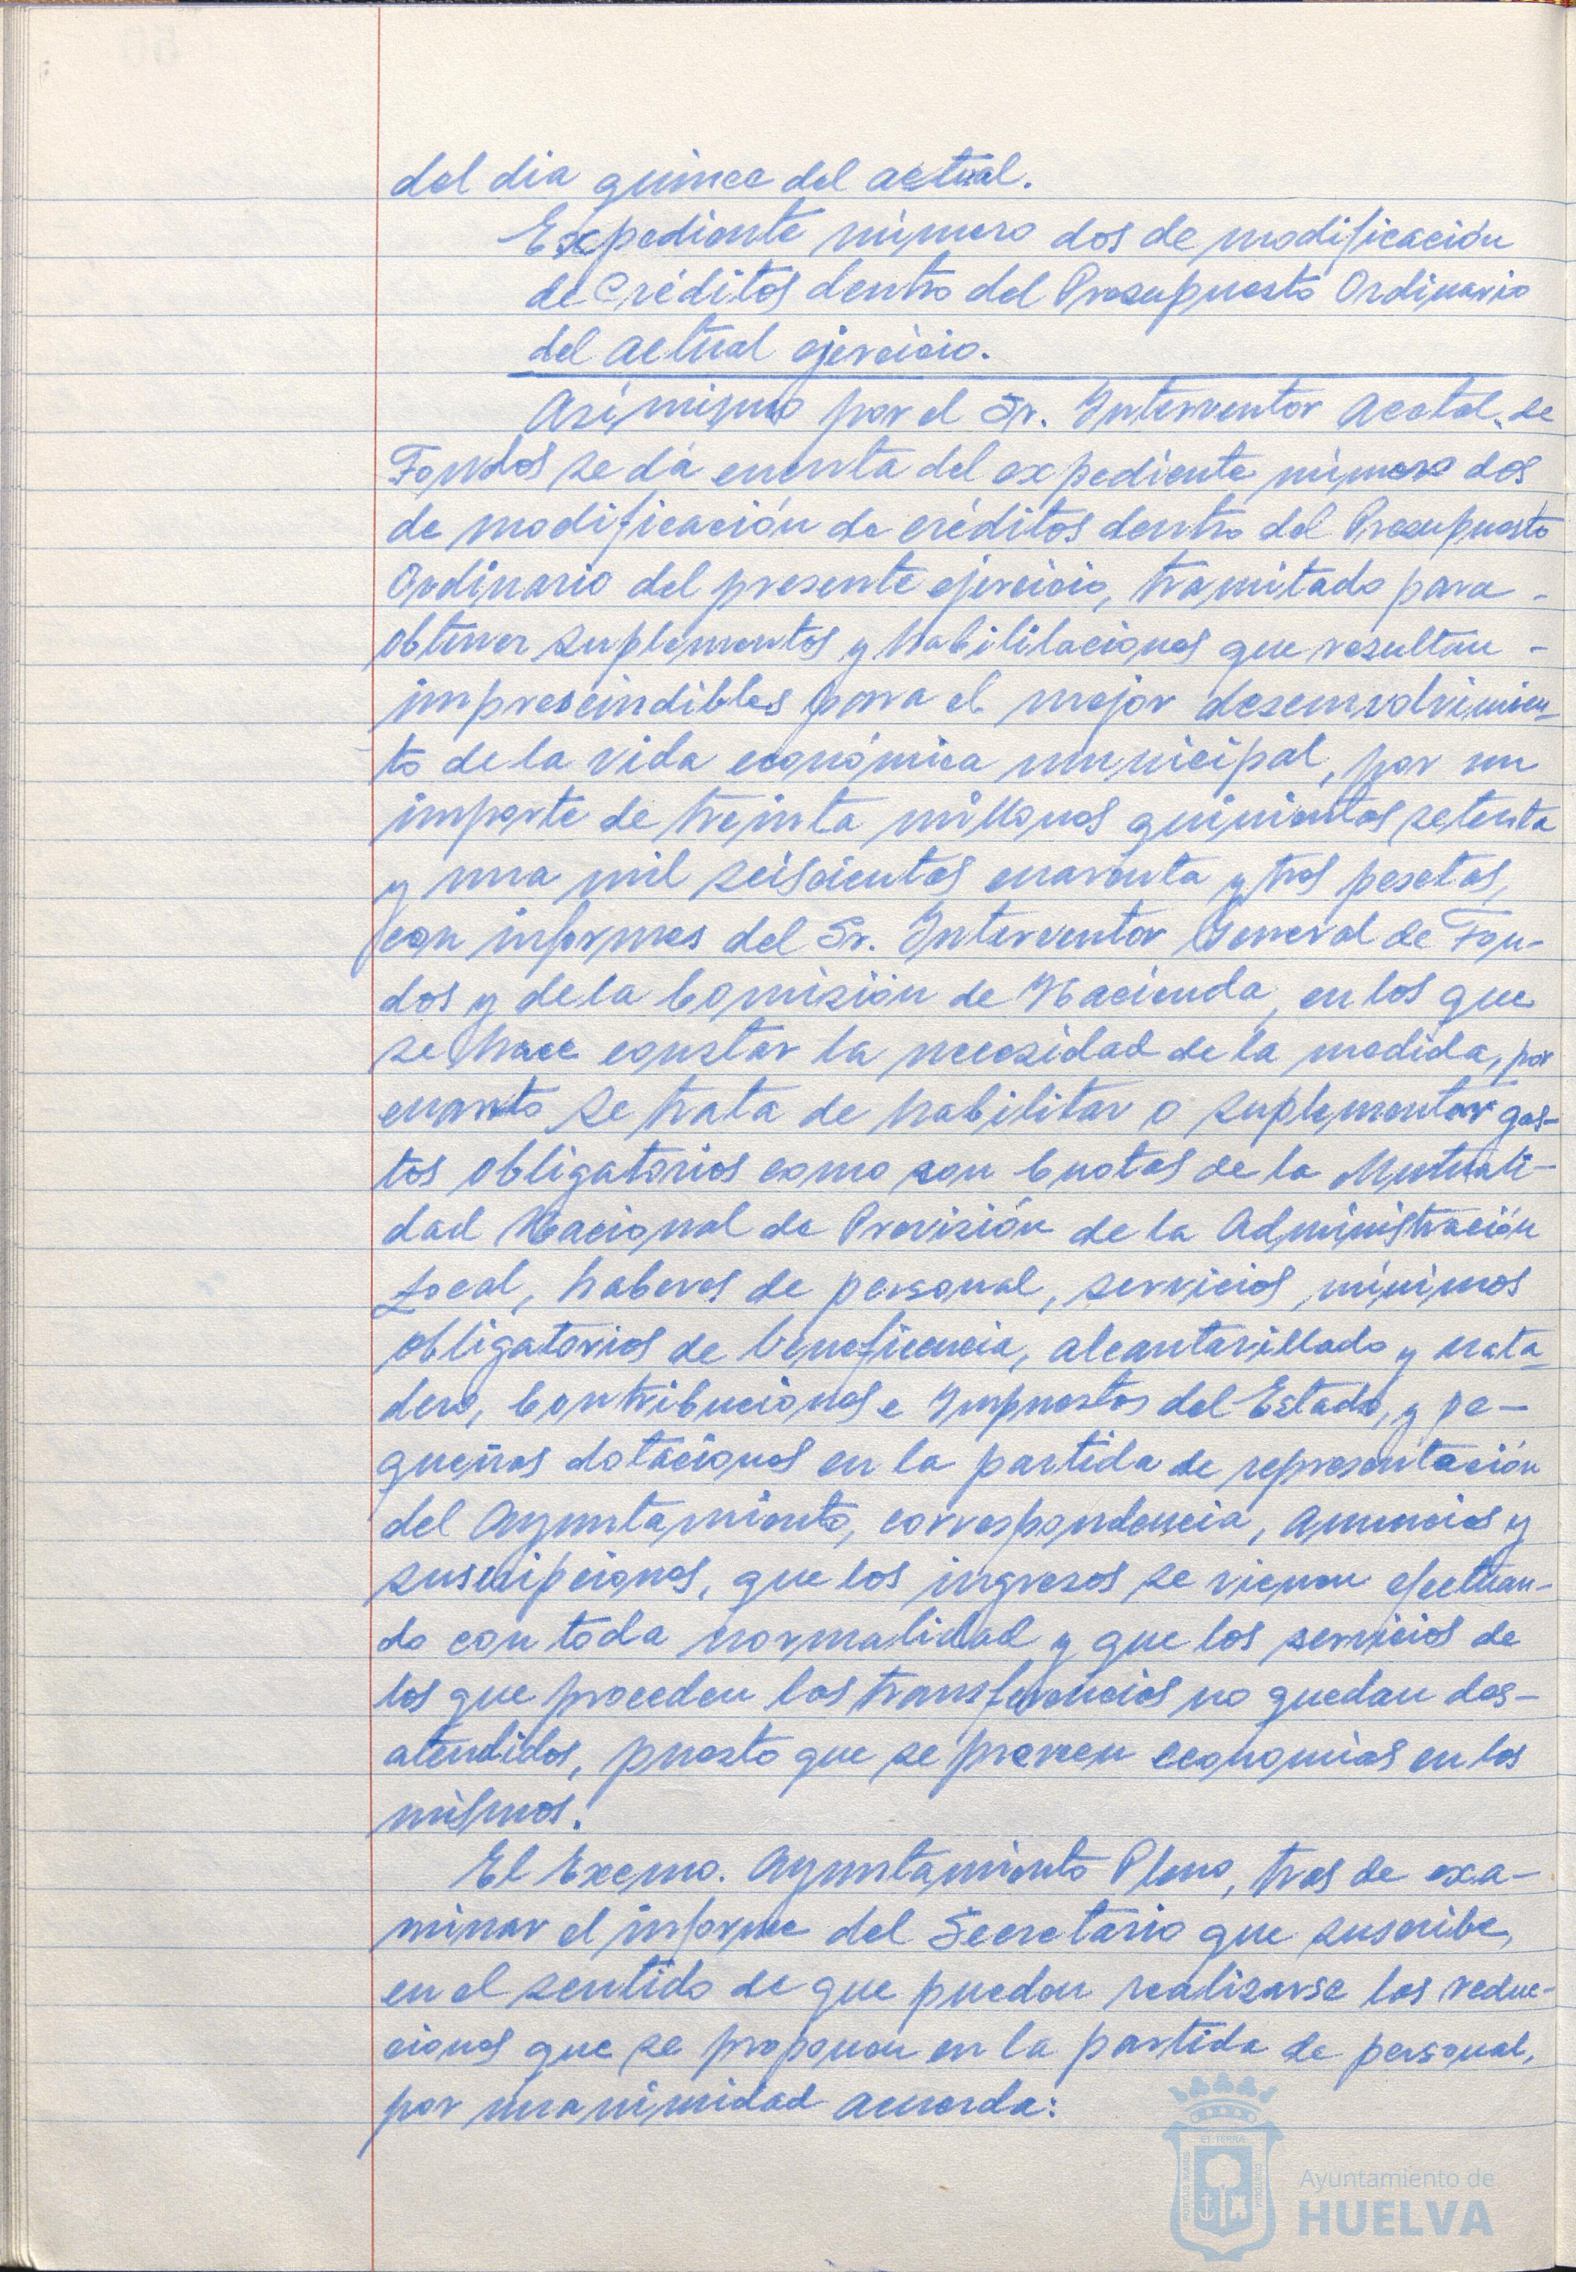 del dia quince del actual.
Expediente número dos de modificación
de Créditos dentro del Presupuesto Ordinario
del actual ejercicio.
Asímismo por el Sr. Interventor Acctal. de
Fondos se dá cuenta del expediente número dos
de modificación de créditos dentro del Presupuesto
Ordinario del presente ejercicio, tramitado para -
obtener suplementos y habilitaciones que resultan -
imprescindibles para el mejor desenvolvimien-
to de la vida económica municipal, por un
importe de treinta millones quinientas setenta
y una mil seiscientas cuarenta y tres pesetas,
con informes del Sr. Interventor General de Fon-
dos y de la Comisión de Hacienda, en los que
se hace constar la necesidad de la medida, por
cuanto se trata de habilitar o suplementar gas-
tos obligatorios como son Cuotas de la Mutuali-
dad Nacional de Previsión de la Administración
Local, haberes de personal, servicios mínimos
obligatorios de beneficencia, alcantarillado y mata-
dero, Contribuciones e Impuestos del Estado, y pe-
queñas dotaciones en la partida de representación
del Ayuntamiento, correspondencia, anuncios y
suscripciones, que los ingresos se vienen efectuan-
do con toda normalidad y que los servicios de
los que proceden las transferencias no quedan des-
atendidos, puesto que se preveen economías en los
mismos.
El Excmo. Ayuntamiento Pleno, tras de exa-
minar el informe del Secretario que suscribe,
en el sentido de que pueden realizarse las reduc-
ciones que se proponen en la partida de personal,
por unanimidad acuerda:
PORTUS MARIS
ET TERRA
CUSTODIA
Ayuntamiento de
HUELVA